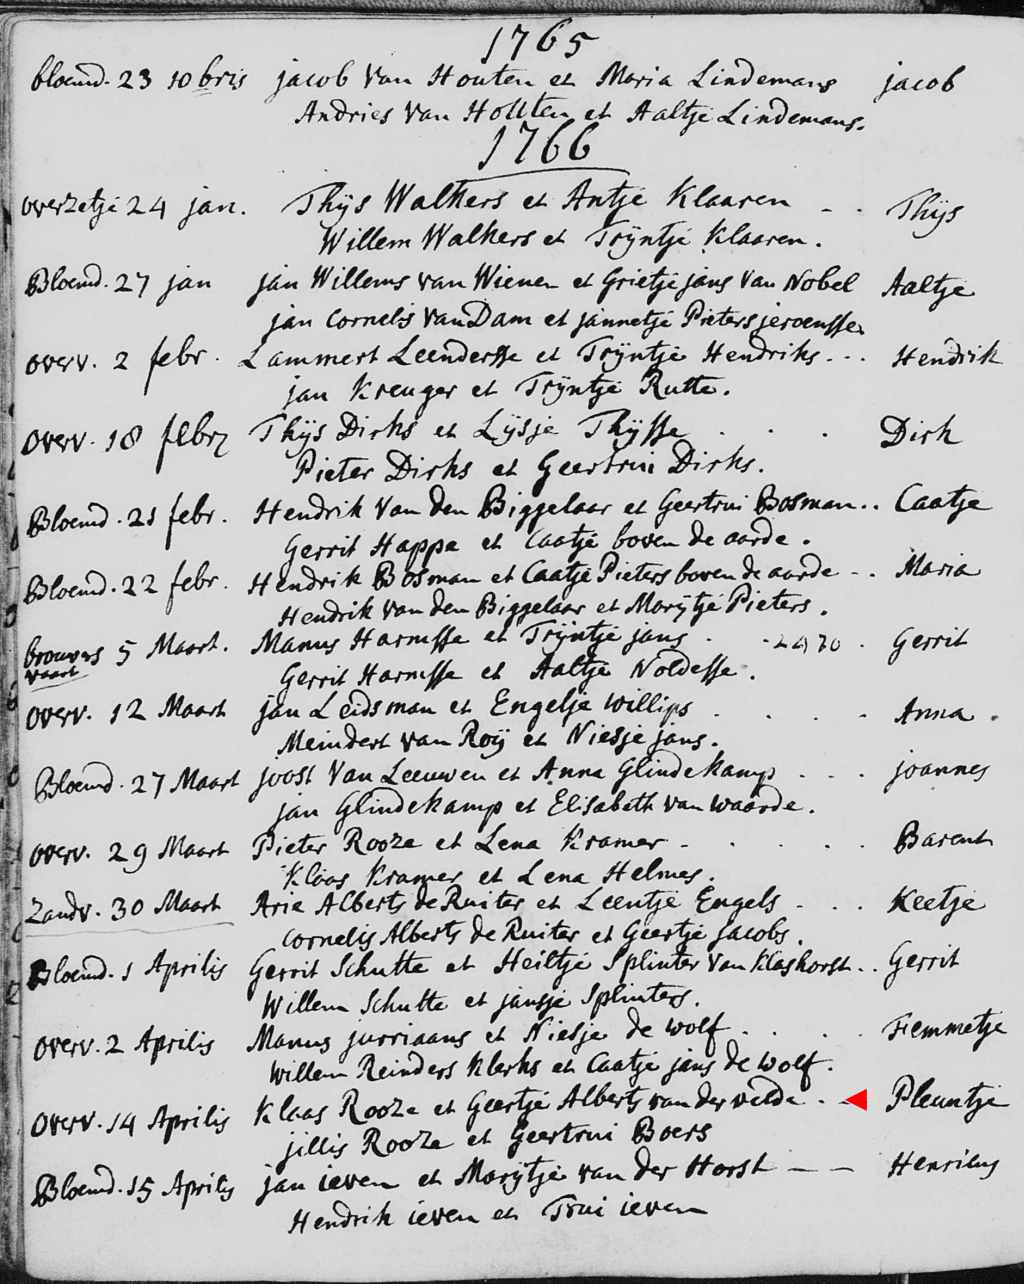 1765
bloemd. 23 10bris jacob van Houten et Maria Lindemans jacob
Andries van Houten et Aaltje Lindemans.
1766
overzetje 24 jan. Thijs Walkers et Antje Klaaren - . Thijs
Willem Walkers et Trijntje Klaaren.
Bloemd. 27 jan jan Willems van Wienen et Grietje jans van Nobel Aaltje
jan Cornelis van Dam et jannetje Pieters jeroensse
overv. 2 febr. Lammert Leendersse et Trijntje Hendriks - - . Hendrik
jan Kreuger et Trijntje Rutte.
overv. 18 febr Thijs Dirks et Lijsje Thijsse . . . Dirk
Pieter Dirks et Geertrui Dirks.
Bloemd. 21 febr. Hendrik van den Biggelaar et Geertrui Bosman . . Caatje
Gerrit Happe et Caatje boven de aarde.
Bloemd. 22 febr. Hendrik Bosman et Caatje Pieters boven de aarde - . Maria
Hendrik van den Biggelaar et Marijtje Pieters.
brouwers vaart 5 Maart. Manus Harmsse et Trijntje jans . . Gerrit
Gerrit Harmsse et Aaltje Noldesse.
overv. 12 Maart jan Leidsman et Engelje willips . . . . Anna.
Meindert van Roij et Niesje jans.
Bloemd. 27 Maart joost van Leeuwen et Anna Glindekamp . . . joannes
jan Glindekamp et Elisabeth van waarde.
overv. 29 Maart Pieter Rooze et Lena Kramer - . . . . Barent
Klaas Kramer et Lena Helmes.
Zandv. 30 Maart Arie Alberts de Ruiter et Leentje Engels - . . Keetje
Cornelis Alberts de Ruiter et Geertje jacobs.
Bloemd. 1 Aprilis Gerrit Schutte et Heiltje Splinter van Klashorst . . Gerrit
Willem Schutte et jansje Splinters.
overv. 2 Aprilis Manus jurriaans et Niesje de wolf . . . . Femmetje
Willem Reinders Klerks et Caatje jans de wolf.
overv. 14 Aprilis Klaas Rooze et Geertje Alberts van der velde . - Pleuntje
jillis Rooze et Geertrui Boers
Bloemd. 15 Aprilis jan ieven et Marijtje van der Horst - - Henrikus
Hendrik ieven et Trui ieven